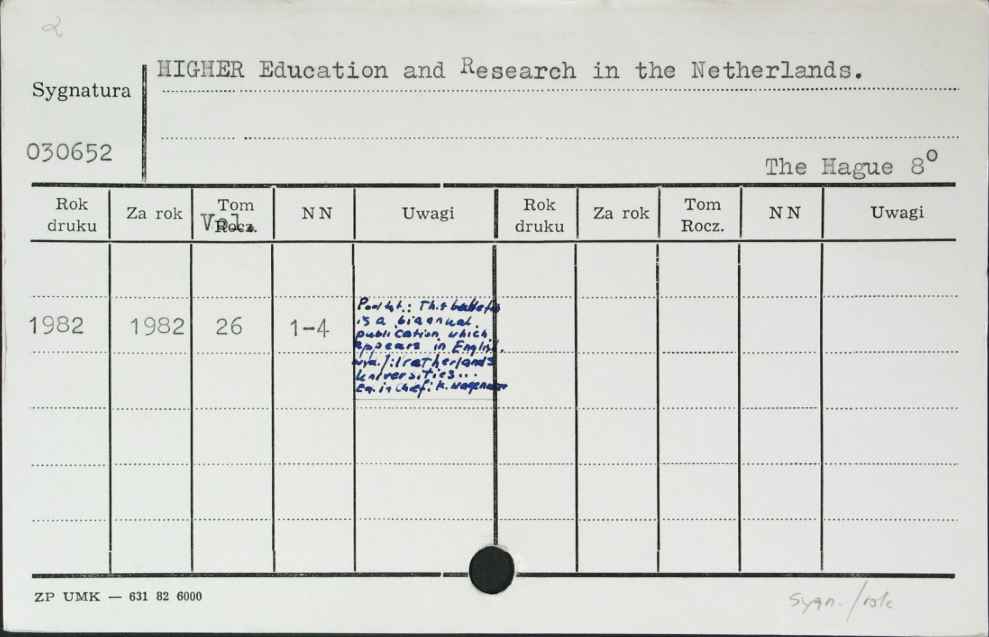 2
HIGHER Education and Research in the Netherlands.
Sygnatura
030652
The Hague 8⁰
Rok druku Za rok Tom Rocz. Vol. NN Uwagi Rok druku Za rok Tom Rocz. NN Uwagi
1982 1982 26 1-4
This bulletin
is a biannual
publication which
appears in English.
Netherlands
Universities...
Ed. in chef: K. Wagenaar
ZP UMK — 631 82 6000
Sygn./rok